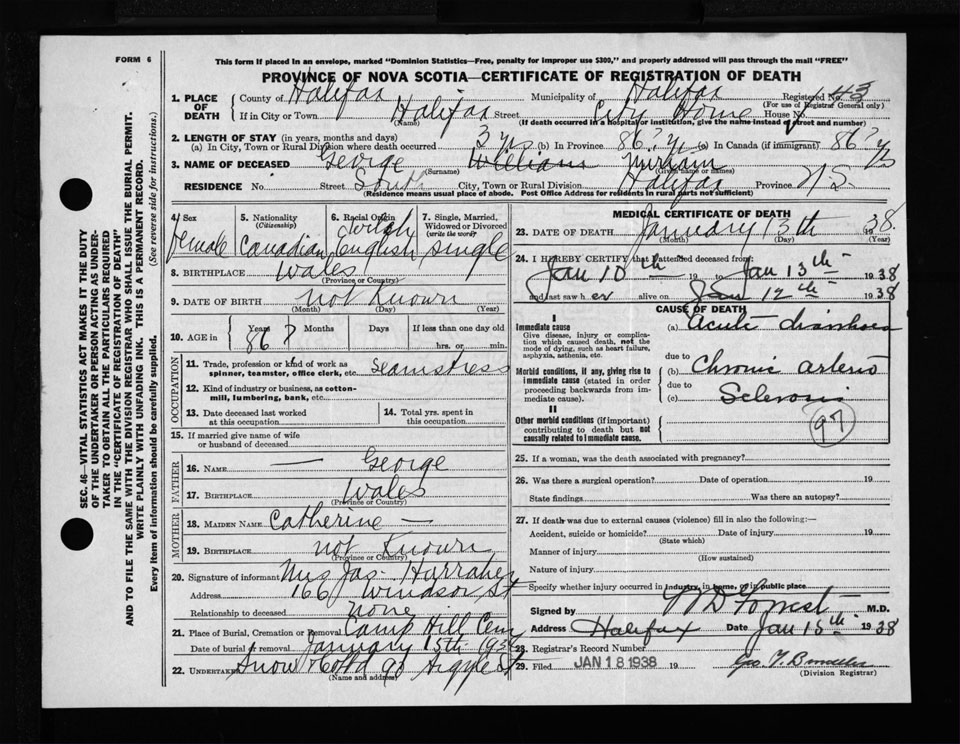 FORM 6
This form if placed in an envelope, marked "Dominion Statistics—Free, penalty for improper use $300," and properly addressed will pass through the mail "FREE"
PROVINCE OF NOVA SCOTIA—CERTIFICATE OF REGISTRATION OF DEATH
SEC. 46—VITAL STATISTICS ACT MAKES IT THE DUTY
OF THE UNDERTAKER OR PERSON ACTING AS UNDER-
TAKER TO OBTAIN ALL THE PARTICULARS REQUIRED
IN THE "CERTIFICATE OF REGISTRATION OF DEATH"
AND TO FILE THE SAME WITH THE DIVISION REGISTRAR WHO SHALL ISSUE THE BURIAL PERMIT.
WRITE PLAINLY WITH UNFADING INK. THIS IS A PERMANENT RECORD.
Every item of information should be carefully supplied. (See reverse side for instructions.)
1. PLACE OF DEATH County of Halifax Municipality of Halifax Registered No. 143
(For use of Registrar General only)
If in City or Town Halifax Street City Home House No.
(Name) (If death occurred in a hospital or institution, give the name instead of street and number)
2. LENGTH OF STAY (in years, months and days)
(a) In City, Town or Rural Division where death occurred 3 yrs (b) In Province 86? yrs (c) In Canada (if immigrant) 86? yrs
3. NAME OF DECEASED George William Miriam
(Surname) (Given name or names)
RESIDENCE No. Street South City, Town or Rural Division Halifax Province N S
(Residence means usual place of abode. Post Office Address for residents in rural parts not sufficient)
4. Sex female
5. Nationality (Citizenship) Canadian
6. Racial Origin Welsh English
7. Single, Married, Widowed or Divorced (write the word) Single
8. BIRTHPLACE Wales
(Province or Country)
9. DATE OF BIRTH not Known
(Month) (Day) (Year)
10. AGE in Years 86? Months Days If less than one day old hrs. or min.
OCCUPATION
11. Trade, profession or kind of work as spinner, teamster, office clerk, etc. Seamstress
12. Kind of industry or business, as cotton-mill, lumbering, bank, etc.
13. Date deceased last worked at this occupation
14. Total yrs. spent in this occupation
15. If married give name of wife or husband of deceased
FATHER
16. NAME — George
17. BIRTHPLACE Wales
(Province or Country)
MOTHER
18. MAIDEN NAME Catherine —
19. BIRTHPLACE not Known
(Province or Country)
20. Signature of informant Mrs Jas.
Address 166 Windsor St
Relationship to deceased none
21. Place of Burial, Cremation or Removal Camp Hill Cem
Date of burial or removal January 15th 1938
22. UNDERTAKER Snow & Co Ltd 90 Argyle St
(Name and address)
MEDICAL CERTIFICATE OF DEATH
23. DATE OF DEATH January 13th 1938.
(Month) (Day) (Year)
24. I HEREBY CERTIFY that I attended deceased from:
Jan 10th 19 to Jan 13th 1938
and last saw her alive on Jan 12th 1938
CAUSE OF DEATH
I
Immediate cause
Give disease, injury or complication which caused death, not the mode of dying, such as heart failure, asphyxia, asthenia, etc.
(a) Acute diarrhoea
due to
Morbid conditions, if any, giving rise to immediate cause (stated in order proceeding backwards from immediate cause).
(b) Chronic arterio
due to
(c) Sclerosis
II
Other morbid conditions (if important) contributing to death but not causally related to immediate cause.
97
25. If a woman, was the death associated with pregnancy?
26. Was there a surgical operation? Date of operation 19
State findings Was there an autopsy?
27. If death was due to external causes (violence) fill in also the following:—
Accident, suicide or homicide? Date of injury 19
(State which)
Manner of injury
(How sustained)
Nature of injury
Specify whether injury occurred in industry, in home, or in public place
Signed by W D Forrest M.D.
Address Halifax Date Jan 15th 1938
28. Registrar's Record Number
29. Filed JAN 18 1938 19
(Division Registrar)